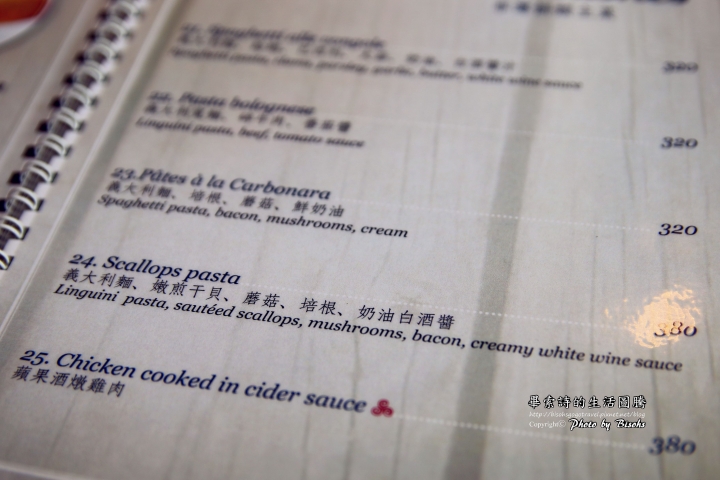 21. Spaghetti alle vongole
320
22. Pasta bolognese
Linguini pasta, beef, tomato sauce
320
23.Pâtes à la Carbonara
義大利麵、培根、蘑菇、鮮奶油
Spaghetti pasta, bacon, mushrooms, cream
320
24. Scallops pasta
義大利麵、嫩煎干貝、蘑菇、培根、奶油白酒醬
Linguini pasta, sautéed scallops, mushrooms, bacon, creamy white wine sauce
380
25. Chicken cooked in cider sauce
蘋果酒燉雞肉
380
畢索詩的生活圖騰
Copyright© Photo by Bisohs